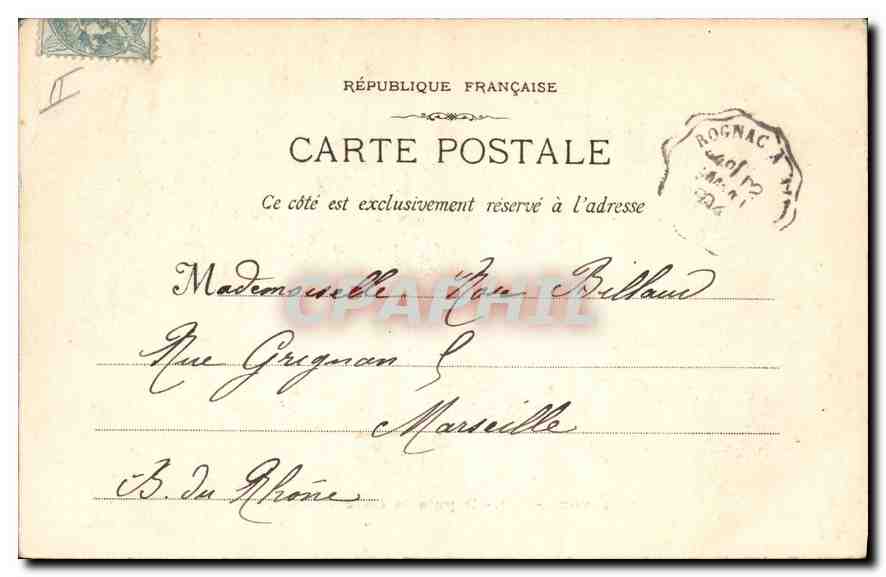 II
RÉPUBLIQUE FRANÇAISE
CARTE POSTALE
ROGNAC À
Ce côté est exclusivement réservé à l'adresse
Mademoiselle Rose Billaud
CPAPHIL
Rue Grignan 5
Marseille
B. du Rhône